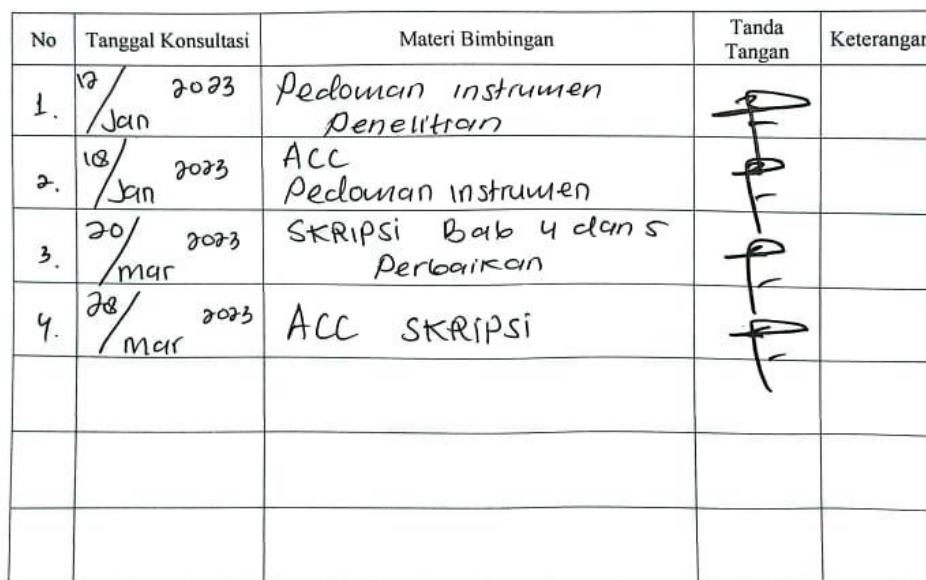 No Tanggal Konsultasi Materi Bimbingan Tanda Tangan Keterangan
1. 12/Jan 2023 Pedoman instrumen
Penelitian
2. 18/Jan 2023 ACC
Pedoman instrumen
3. 20/mar 2023 SKRIPSi Bab 4 dan 5
Perbaikan
4. 28/Mar 2023 ACC SKRIPSi